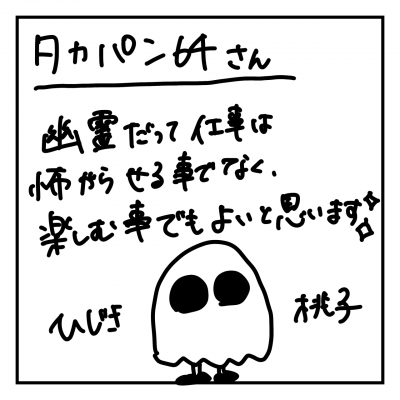 タカパン64さん
幽霊だって仕事は
怖がらせる事でなく、
楽しむ事でもよいと思います
ひじき
桃子